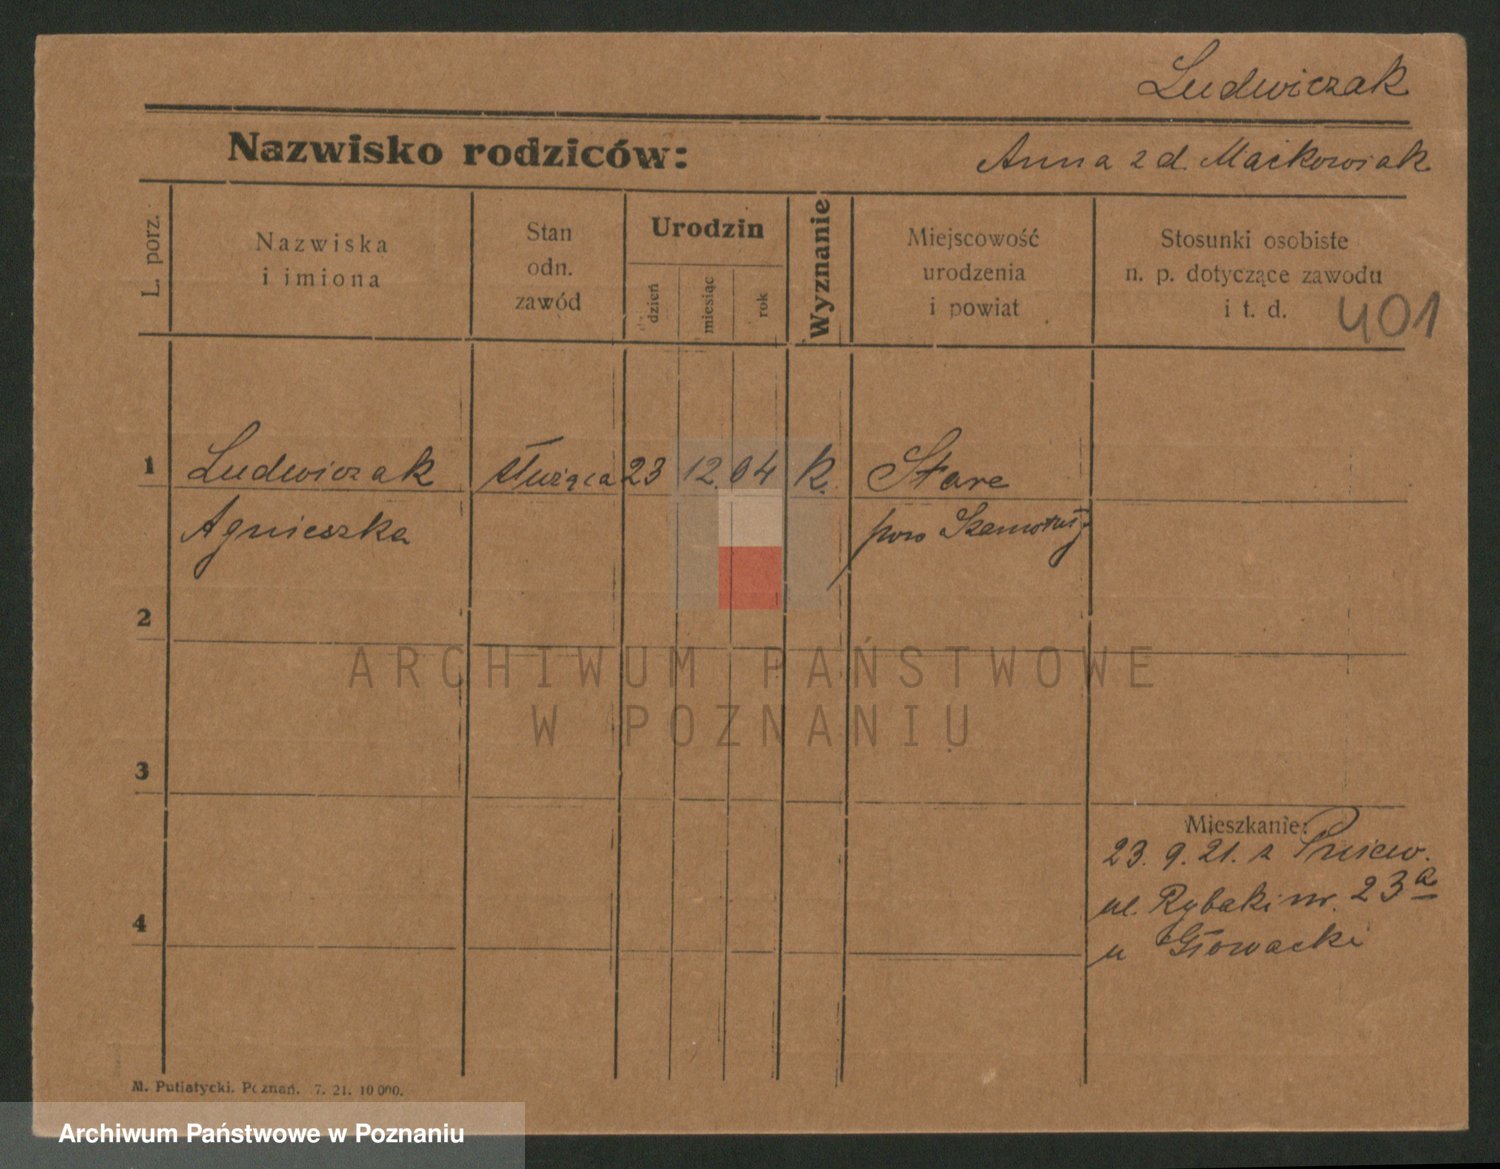 Ludwiczak
Nazwisko rodziców: Anna z d. Maćkowiak
L. porz.
Nazwiska
i imiona
Stan
odn.
zawód
Urodzin
dzień
miesiąc
rok
Wyznanie
Miejscowość
urodzenia
i powiat
Stosunki osobiste
n. p. dotyczące zawodu
i t. d.
401
1 Ludwiczak służąca 23 12. 04 k. Stare
Agnieszka pow Szamotuły
2
ARCHIWUM PAŃSTWOWE
W POZNANIU
3
Mieszkanie:
23. 9. 21. z Pniew.
ul. Rybaki nr. 23a
4
u Głowacki
M. Putiatycki. Poznań. 7. 21. 10 000.
Archiwum Państwowe w Poznaniu